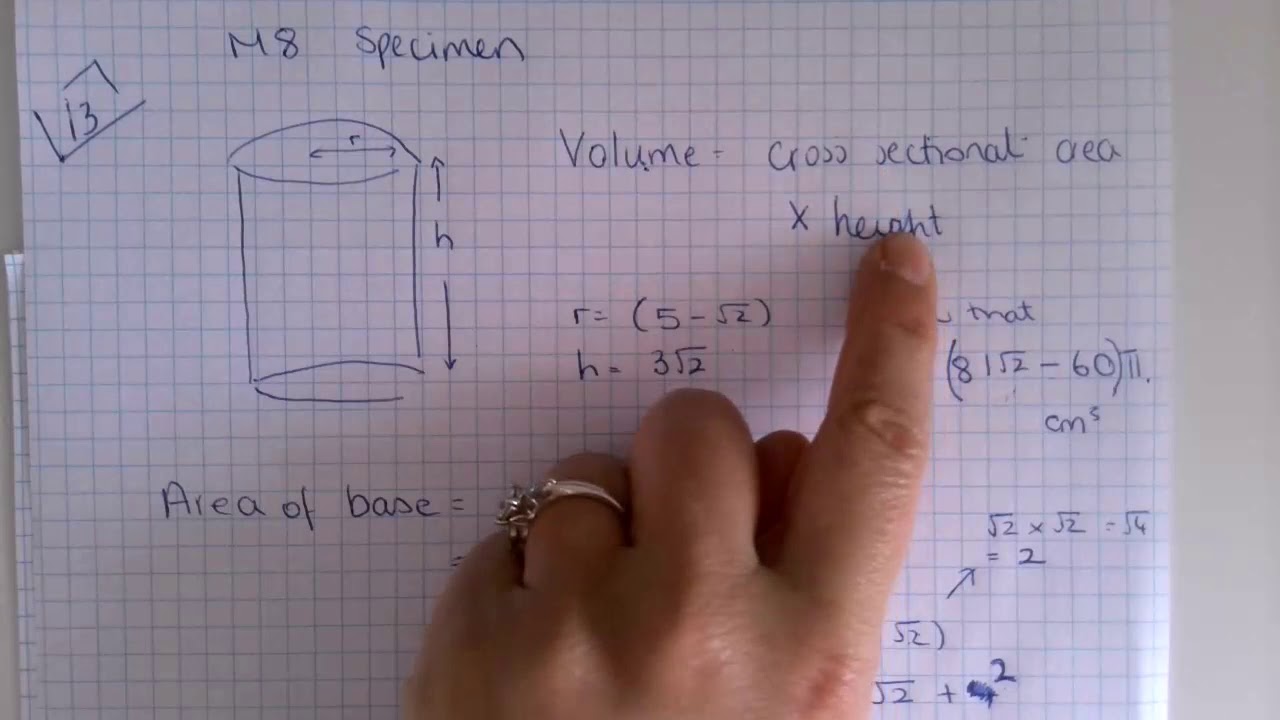 M8 Specimen
13
r
h
Volume = cross sectional area
x height
r = (5 - √2)
h = 3√2
that
(81√2 - 60)π.
cm³
Area of base =
=
√2 x √2 = √4
= 2
√2)
√2 + 2